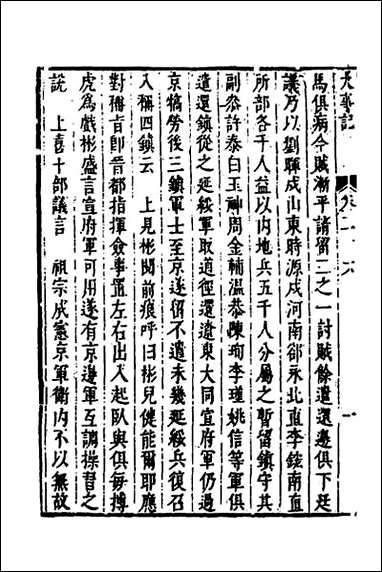 大事記 卷二十六 一
馬俱病今賊漸平請留二之一討賊餘遣還邊俱下廷
議乃以劉暉戍山東時源戍河南郤永北直李鋐南直
所部各千人益以內地兵五千人分屬之暫留鎮守其
副叅許泰白玉神周金輔溫恭陳珣李瑾姚信等軍俱
遣還鎮從之延綏軍取道徑還遼東大同宣府軍仍過
京犒勞後三鎮軍士至京遂留不遣未幾延綏兵復召
入稱四鎮云　上見彬閱前痕呼曰彬兒健能爾耶應
對稱旨即晉都指揮僉事置左右出入起臥與俱每搏
虎爲戲彬盛言宣府軍可用遂有京邊軍互調操習之
說　上喜十部議言　祖宗成憲京軍衛內不以無故